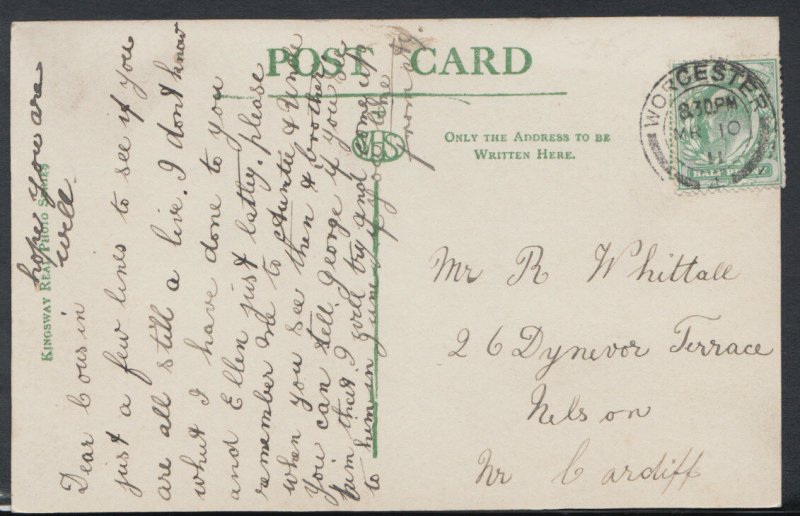 POST CARD
ONLY THE ADDRESS TO BE
WRITTEN HERE.
WORCESTER
8.30PM
MR 10
11
KINGSWAY REAL PHOTO SERIES
hope you are
well
Dear Cousin
just a few lines to see if you
are all still a live. I dont know
what I have done to you
and Ellen just lately. please
remember me to Auntie & Uncle
when you see then & brother
You can tell George if you see
him that I will try and come up
to him in June if you like
from
Mr R Whittall
26 Dynevor Terrace
Nelson
Nr Cardiff